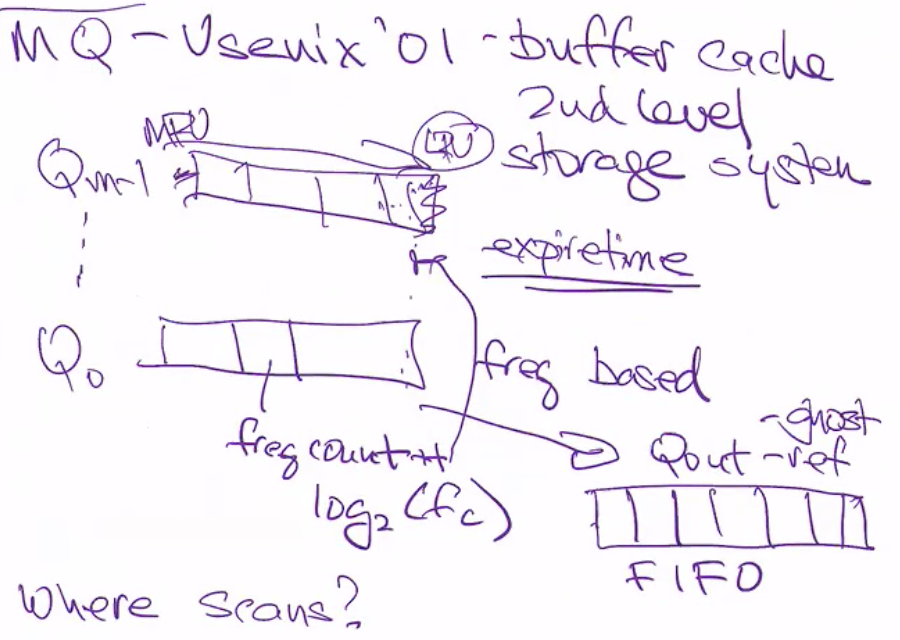 MQ - Usenix '01 - buffer cache
2nd level
storage system
MRU
LRU
Qm-1
expiretime
Q0
freq based
freq count++
log2 (fc)
-ghost
Qout -ref
FIFO
Where scans?